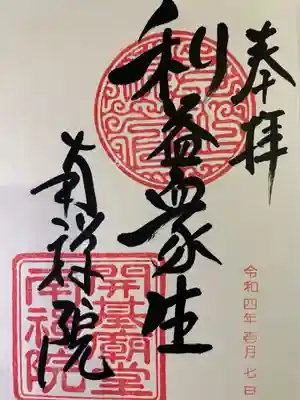 奉拝
利益衆生
南禅院
開基廟堂
南禅院
令和四年壱月七日